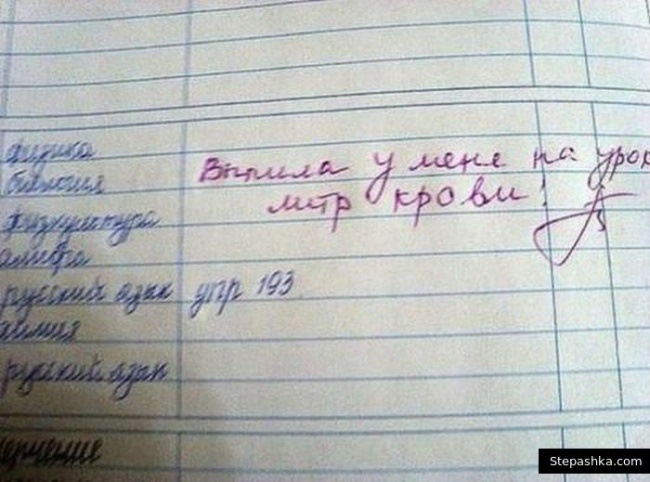 физика
биология
Выпила у мене на урок
литр крови!
физкультура
алгебра
русский язык упр 193
химия
русский язык
черчение
Stepashka.com